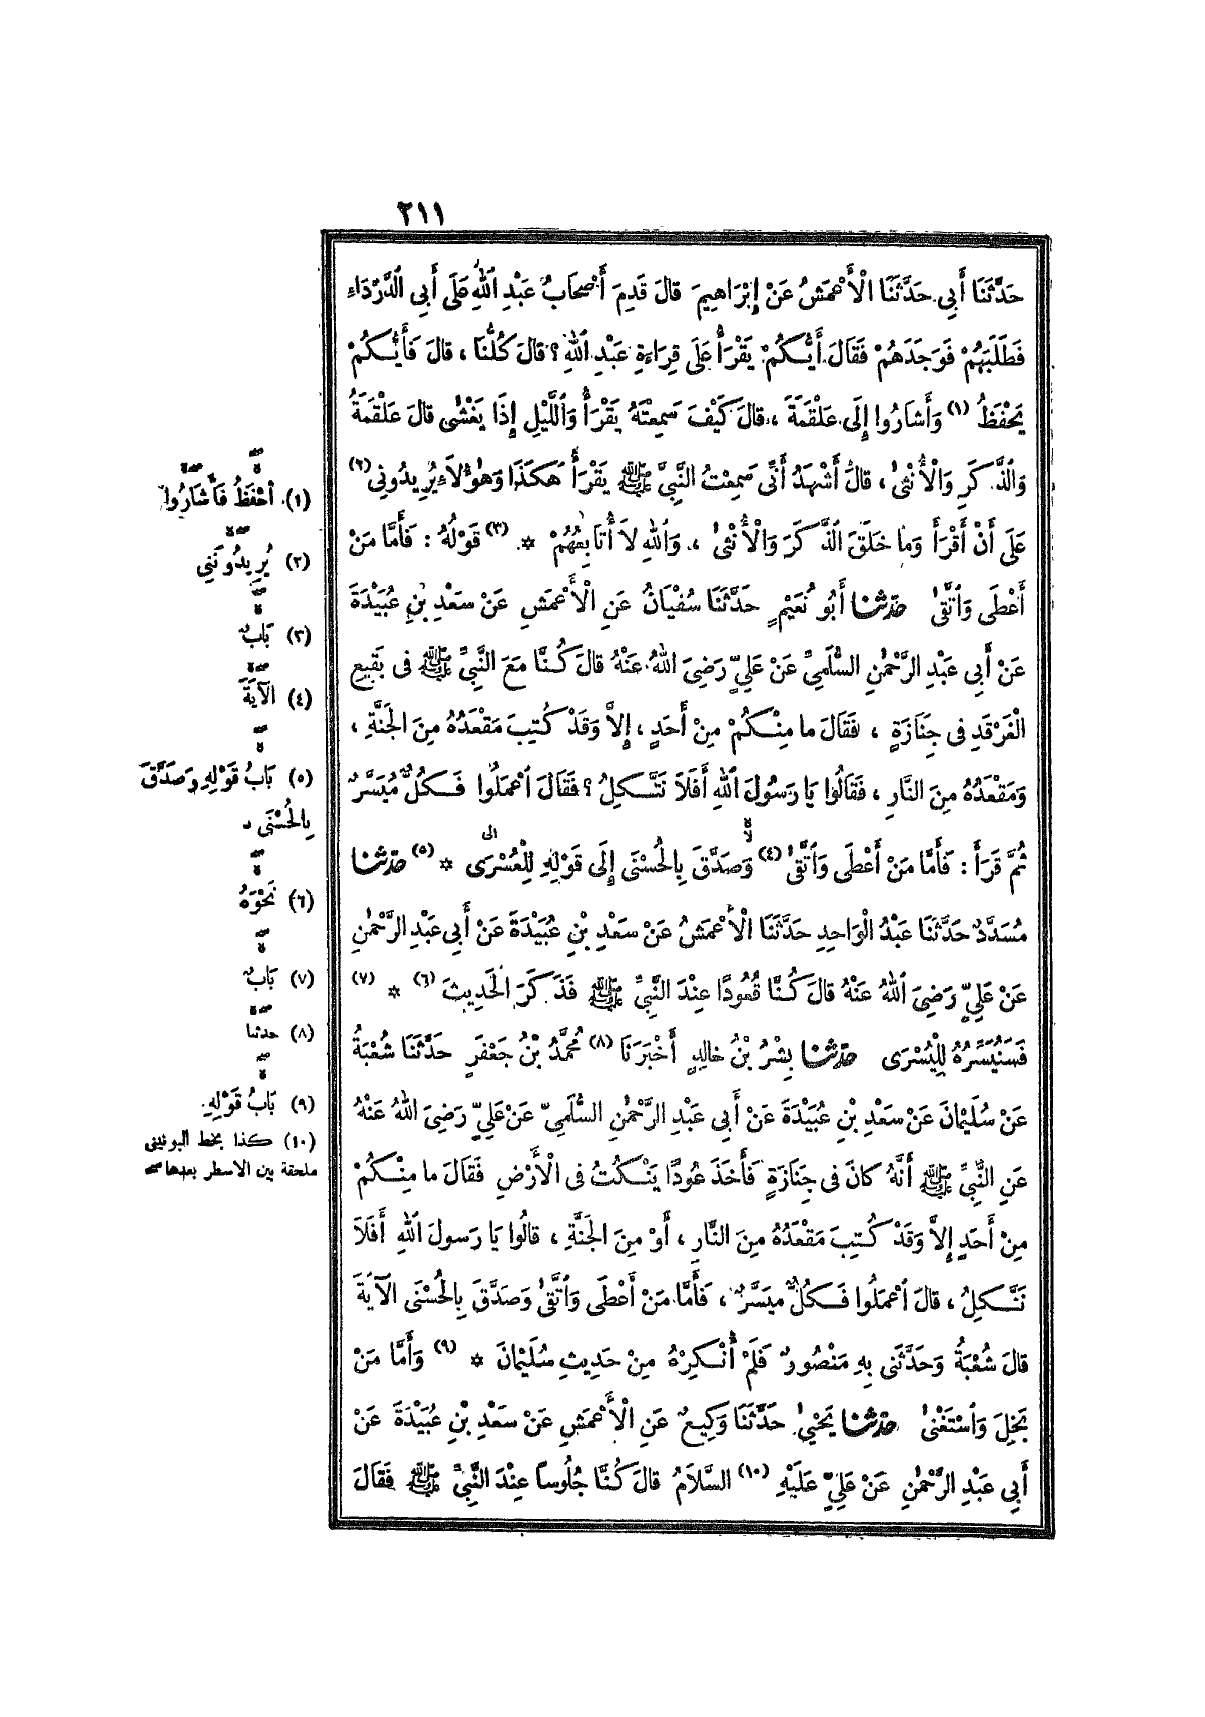 ٢١١
حَدَّثَنَا أَبِى حَدَّثَنَا الْأَعْمَشُ عَنْ إِبْرَاهِيمَ قَالَ قَدِمَ أَصْحَابُ عَبْدِ اللهِ عَلَى أَبِى الدَّرْدَاءِ
فَطَلَبَهُمْ فَوَجَدَهُمْ فَقَالَ أَيُّكُمْ يَقْرَأُ عَلَى قِرَاءَةِ عَبْدِ اللهِ ؟ قَالَ كُلُّنَا ، قَالَ فَأَيُّكُمْ
يَحْفَظُ (١) وَأَشَارُوا إِلَى عَلْقَمَةَ ، قَالَ كَيْفَ سَمِعْتَهُ يَقْرَأُ وَاللَّيْلِ إِذَا يَغْشٰى قَالَ عَلْقَمَةُ
وَالذَّكَرِ وَالْأُنْثٰى ، قَالَ أَشْهَدُ أَنِّى سَمِعْتُ النَّبِىَّ ﷺ يَقْرَأُ هَكَذَا وَهٰؤُلَاءِ يُرِيدُونِى (٢)
عَلَى أَنْ أَقْرَأَ وَمَا خَلَقَ الذَّكَرَ وَالْأُنْثٰى ، وَاللهِ لَا أُتَابِعُهُمْ * (٣) قَوْلُهُ : فَأَمَّا مَنْ
أَعْطَى وَاتَّقٰى حَدَّثَنَا أَبُو نُعَيْمٍ حَدَّثَنَا سُفْيَانُ عَنِ الْأَعْمَشِ عَنْ سَعْدِ بْنِ عُبَيْدَةَ
عَنْ أَبِى عَبْدِ الرَّحْمٰنِ السُّلَمِىِّ عَنْ عَلِىٍّ رَضِىَ اللهُ عَنْهُ قَالَ كُنَّا مَعَ النَّبِىِّ ﷺ فِى بَقِيعِ
الْغَرْقَدِ فِى جِنَازَةٍ ، فَقَالَ مَا مِنْكُمْ مِنْ أَحَدٍ ، إِلَّا وَقَدْ كُتِبَ مَقْعَدُهُ مِنَ الْجَنَّةِ ،
وَمَقْعَدُهُ مِنَ النَّارِ ، فَقَالُوا يَا رَسُولَ اللهِ أَفَلَا نَتَّكِلُ ؟ فَقَالَ اعْمَلُوا فَكُلٌّ مُيَسَّرٌ
ثُمَّ قَرَأَ : فَأَمَّا مَنْ أَعْطَى وَاتَّقٰى (٤) وَصَدَّقَ بِالْحُسْنَى إِلَى قَوْلِهِ لِلْعُسْرَى * (٥) حَدَّثَنَا
مُسَدَّدٌ حَدَّثَنَا عَبْدُ الْوَاحِدِ حَدَّثَنَا الْأَعْمَشُ عَنْ سَعْدِ بْنِ عُبَيْدَةَ عَنْ أَبِى عَبْدِ الرَّحْمٰنِ
عَنْ عَلِىٍّ رَضِىَ اللهُ عَنْهُ قَالَ كُنَّا قُعُودًا عِنْدَ النَّبِىِّ ﷺ فَذَكَرَ الْحَدِيثَ (٦) * (٧)
فَسَنُيَسِّرُهُ لِلْيُسْرَى حَدَّثَنَا بِشْرُ بْنُ خَالِدٍ أَخْبَرَنَا (٨) مُحَمَّدُ بْنُ جَعْفَرٍ حَدَّثَنَا شُعْبَةُ
عَنْ سُلَيْمَانَ عَنْ سَعْدِ بْنِ عُبَيْدَةَ عَنْ أَبِى عَبْدِ الرَّحْمٰنِ السُّلَمِىِّ عَنْ عَلِىٍّ رَضِىَ اللهُ عَنْهُ
عَنِ النَّبِىِّ ﷺ أَنَّهُ كَانَ فِى جِنَازَةٍ فَأَخَذَ عُودًا يَنْكُتُ فِى الْأَرْضِ فَقَالَ مَا مِنْكُمْ
مِنْ أَحَدٍ إِلَّا وَقَدْ كُتِبَ مَقْعَدُهُ مِنَ النَّارِ ، أَوْ مِنَ الْجَنَّةِ ، قَالُوا يَا رَسُولَ اللهِ أَفَلَا
نَتَّكِلُ ، قَالَ اعْمَلُوا فَكُلٌّ مُيَسَّرٌ ، فَأَمَّا مَنْ أَعْطَى وَاتَّقٰى وَصَدَّقَ بِالْحُسْنَى الْآيَةَ
قَالَ شُعْبَةُ وَحَدَّثَنِى بِهِ مَنْصُورٌ فَلَمْ أُنْكِرْهُ مِنْ حَدِيثِ سُلَيْمَانَ * (٩) وَأَمَّا مَنْ
بَخِلَ وَاسْتَغْنٰى حَدَّثَنَا يَحْيٰى حَدَّثَنَا وَكِيعٌ عَنِ الْأَعْمَشِ عَنْ سَعْدِ بْنِ عُبَيْدَةَ عَنْ
أَبِى عَبْدِ الرَّحْمٰنِ عَنْ عَلِىٍّ عَلَيْهِ (١٠) السَّلَامُ قَالَ كُنَّا جُلُوسًا عِنْدَ النَّبِىِّ ﷺ فَقَالَ
(١) أَحْفَظُ فَأَشَارُوا
(٢) يُرِيدُونَنِى
(٣) بَابٌ
(٤) الْآيَةَ
(٥) بَابُ قَوْلِهِ وَصَدَّقَ
بِالْحُسْنَى
(٦) نَحْوَهُ
(٧) بَابٌ
(٨) حدثنا
(٩) بَابُ قَوْلِهِ
(١٠) كذا بخط اليونينى
ملحقة بين الاسطر بعدها صح